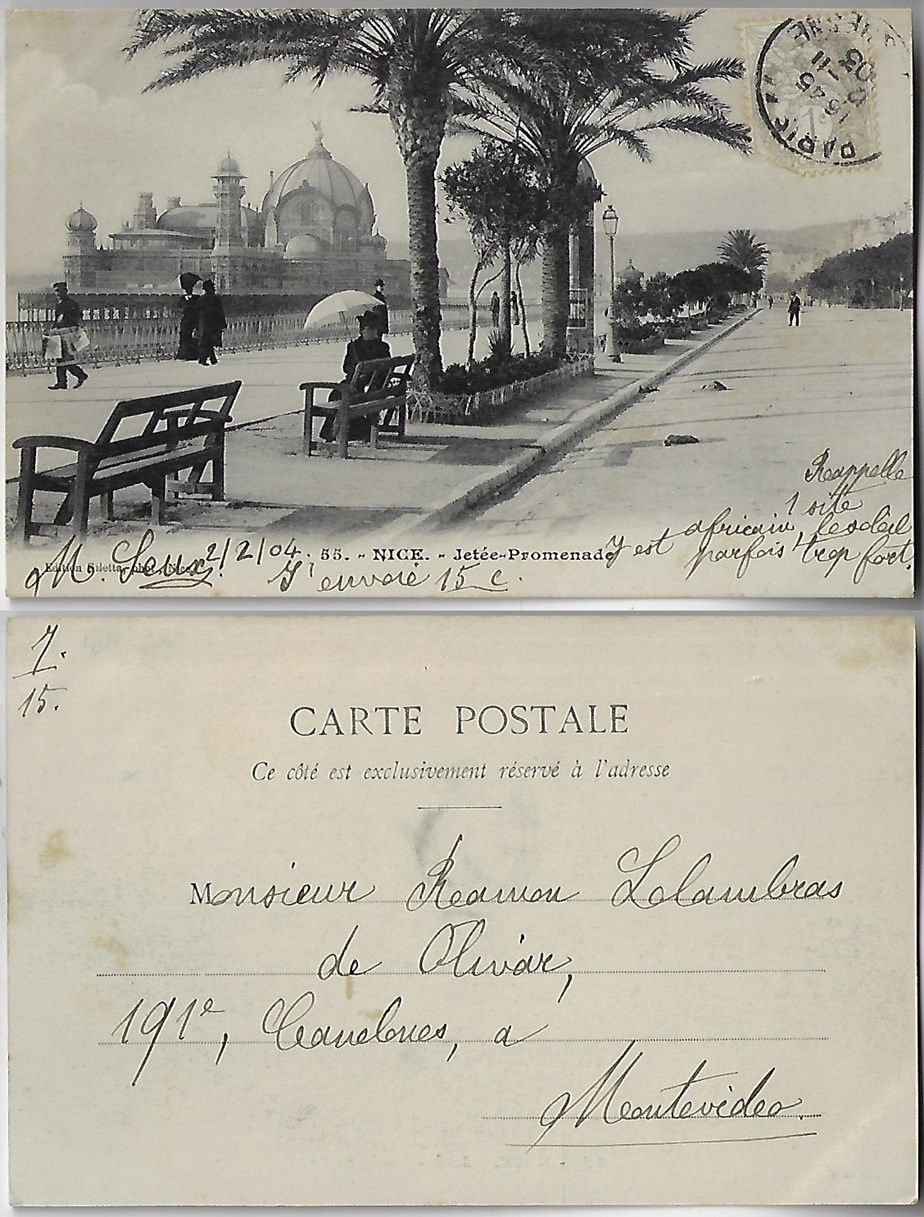 PARIS
6 45
1-11
05
Rappelle
1 site
africain, le soleil
y est parfois trop fort.
M. 2/2/04. 55. - NICE. - Jetée-Promenade
Edition Giletta, phot. Nice
J'envoie 15 c.
7.
15.
CARTE POSTALE
Ce côté est exclusivement réservé à l'adresse
Monsieur Ramon Llambias
de Olivar,
191e, Canelones, a
Montevideo.